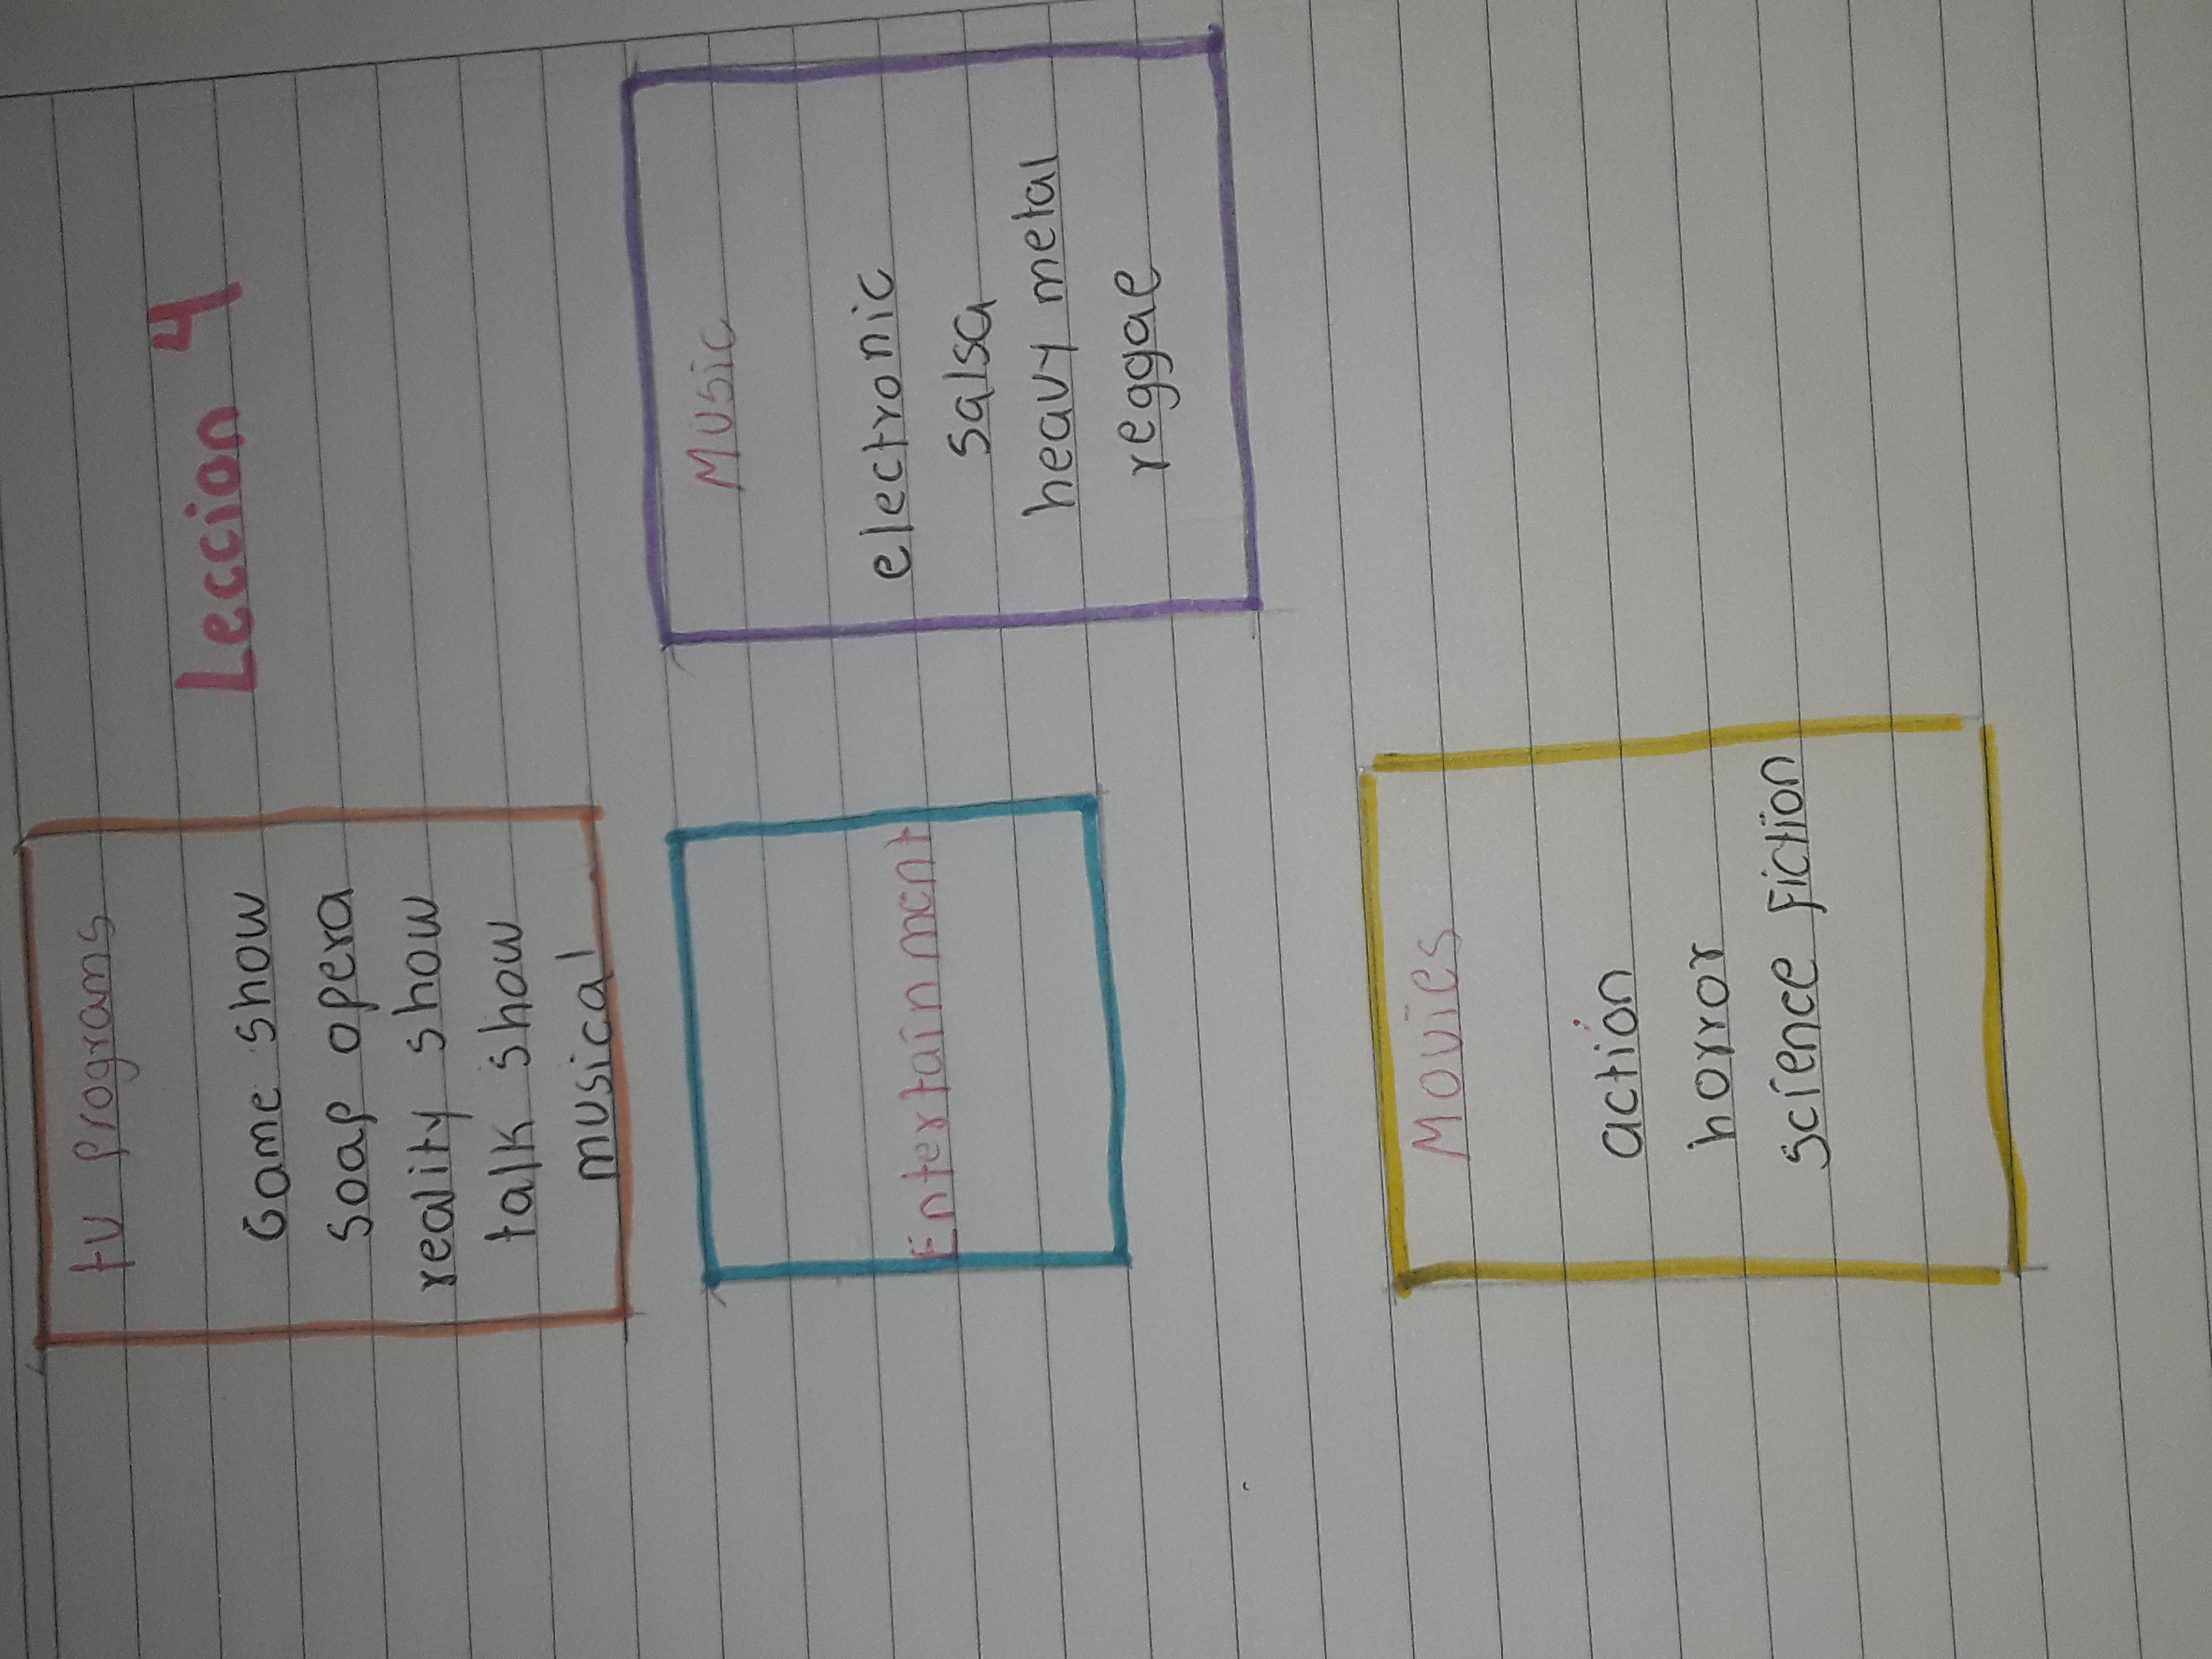 Leccion 4
tv programs
Game show
soap opera
reality show
talk show
musical
Music
electronic
salsa
heavy metal
reggae
Entertainment
Movies
action
horror
science fiction